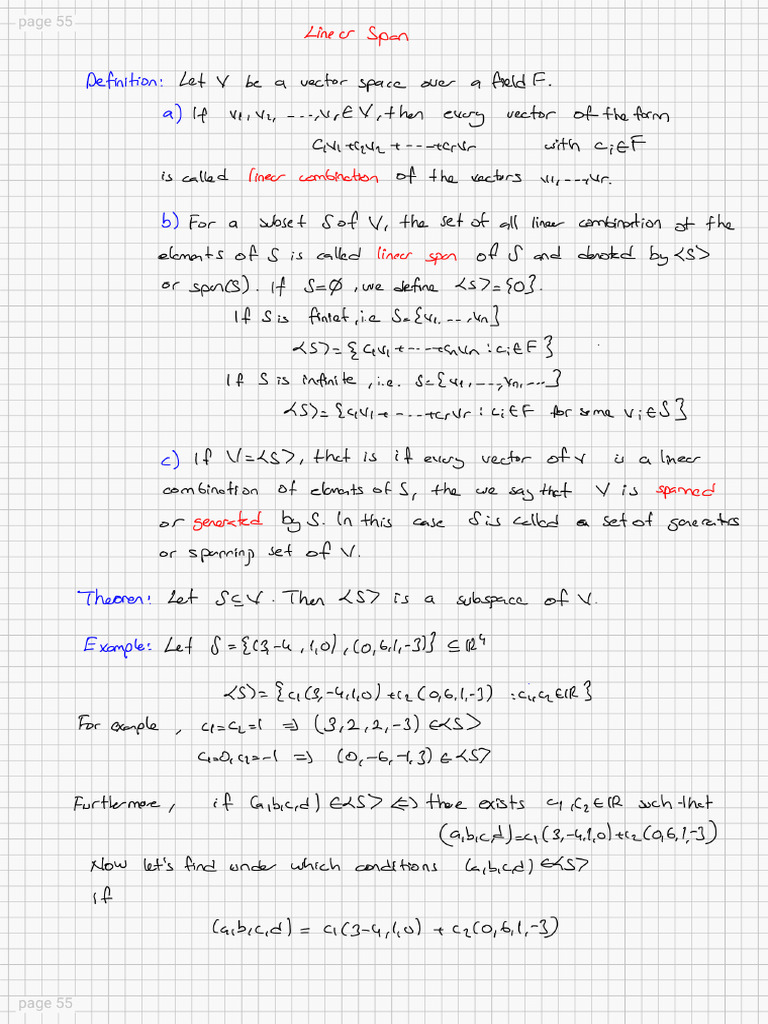 page 55
Linear Span
Definition: Let V be a vector space over a field F.
a) If v₁, v₂, ..., vᵣ ∈ V, then every vector of the form
c₁v₁+c₂v₂ + ---- +cᵣvᵣ with cᵢ ∈ F
is called linear combination of the vectors v₁, ..., vᵣ.
b) For a subset S of V, the set of all linear combination of the
elements of S is called linear span of S and denoted by <S>
or span(S). If S=∅, we define <S>={0}.
If S is finiet, i.e S={v₁, ..., vₙ}
<S>={c₁v₁+----+cₙvₙ : cᵢ∈F}
If S is infinite, i.e. S={v₁, ..., vₙ, ...}
<S>={c₁v₁+----+cᵣvᵣ : cᵢ∈F for some vᵢ∈S}
c) If V=<S>, that is if every vector of v is a linear
combination of elements of S, the we say that V is spanned
or generated by S. In this case S is called a set of generators
or spanning set of V.
Theorem: Let S⊆V. Then <S> is a subspace of V.
Example: Let S={(3,-4,1,0),(0,6,1,-3)} ⊆ ℝ⁴
<S>={c₁(3,-4,1,0)+c₂(0,6,1,-3) : c₁,c₂∈ℝ}
For example, c₁=c₂=1 => (3,2,2,-3)∈<S>
c₁=0, c₂=-1 => (0,-6,-1,3)∈<S>
Furthermore, if (a,b,c,d)∈<S> <=> there exists c₁,c₂∈ℝ such that
(a,b,c,d)=c₁(3,-4,1,0)+c₂(0,6,1,-3)
Now let's find under which conditions (a,b,c,d)∈<S>
if
(a,b,c,d) = c₁(3-4,1,0) + c₂(0,6,1,-3)
page 55